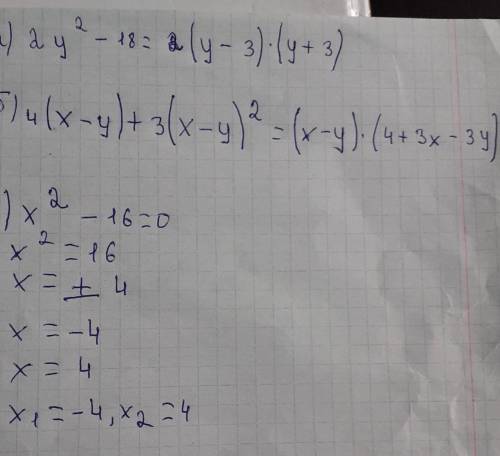 а) 2y² - 18 = 2(y - 3)·(y + 3)
б) 4(x - y) + 3(x - y)² = (x - y)·(4 + 3x - 3y)
) x² - 16 = 0
x² = 16
x = ± 4
x = -4
x = 4
x₁ = -4, x₂ = 4